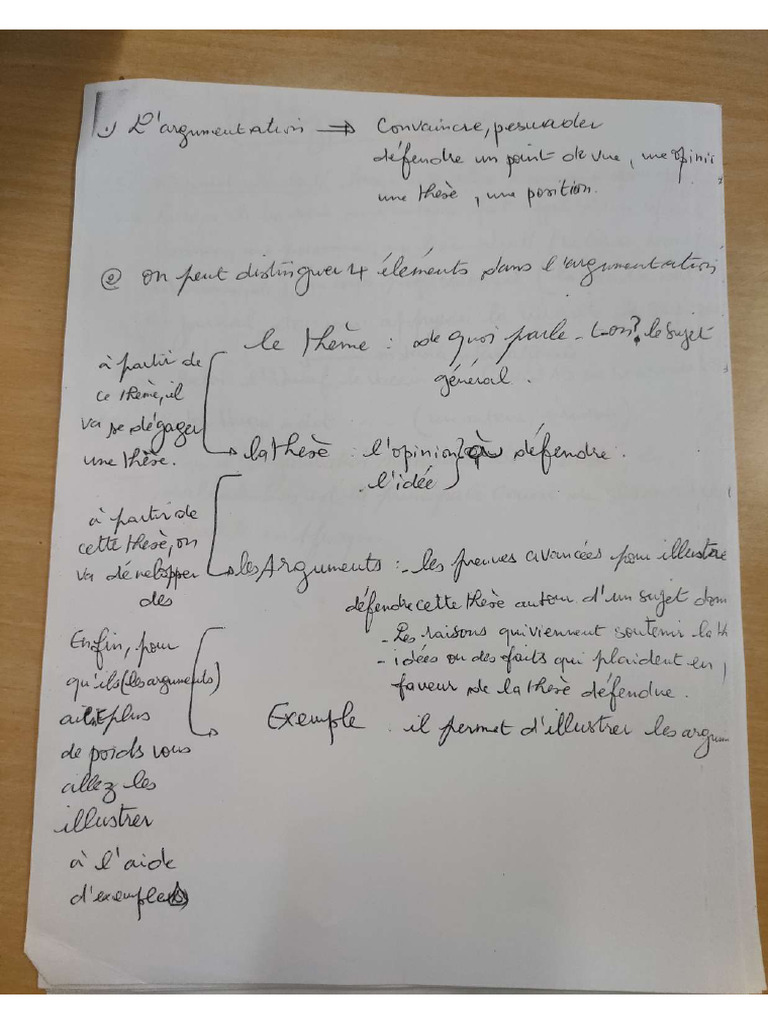 1) L'argumentation → Convaincre, persuader
défendre un point de vue, une opini
une thèse, une position.
② on peut distinguer 4 éléments dans l'argumentation
le thème : de quoi parle-t-on? le sujet
général.
à partir de
ce thème, il
va se dégager
une thèse.
la thèse : l'opinion à défendre.
l'idée
à partir de
cette thèse, on
va développer
des
les Arguments : - les preuves avancées pour illustre
défendre cette thèse autour d'un sujet donn
- Les raisons qui viennent soutenir la th
- idées ou des faits qui plaident en
faveur de la thèse défendue.
Enfin, pour
qu'ils (les arguments)
aient plus
de poids vous
allez les
illustrer
à l'aide
d'exemple(s)
Exemple : il permet d'illustrer les argum